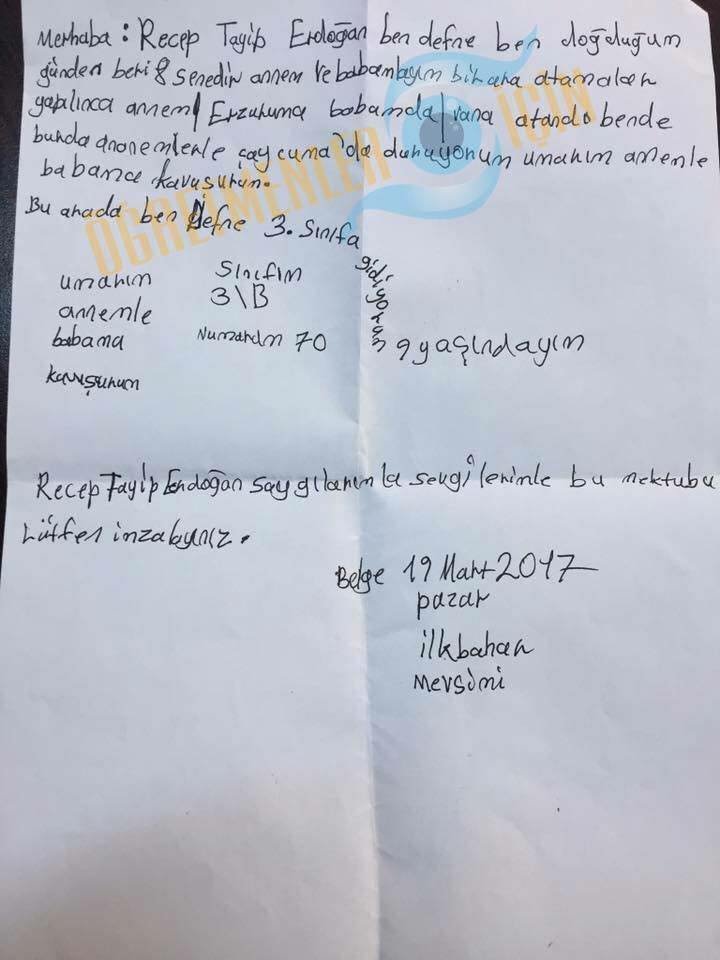 Merhaba: Recep Tayip Erdoğan ben defne ben doğduğum
günden beri 8 senedir annem ve babamlayım bir ara atamalar
yapılınca annem Erzuruma babamda vana atandı bende
burda ananemlerle çay cuma'da duruyorum umarım annemle
babama kavuşurum.
Bu arada ben Defne 3. Sınıfa
gidiyorum
umarım
annemle
babama
kavuşurum
Sınıfım
3\B
Numaram 70
9 yaşındayım
Recep Tayip Erdoğan saygılarımla sevgilerimle bu mektubu
Lütfen imzalayınız.
Belge 19 Mart 2017
pazar
ilkbahar
mevsimi
ÖĞRETMENLER İÇİN